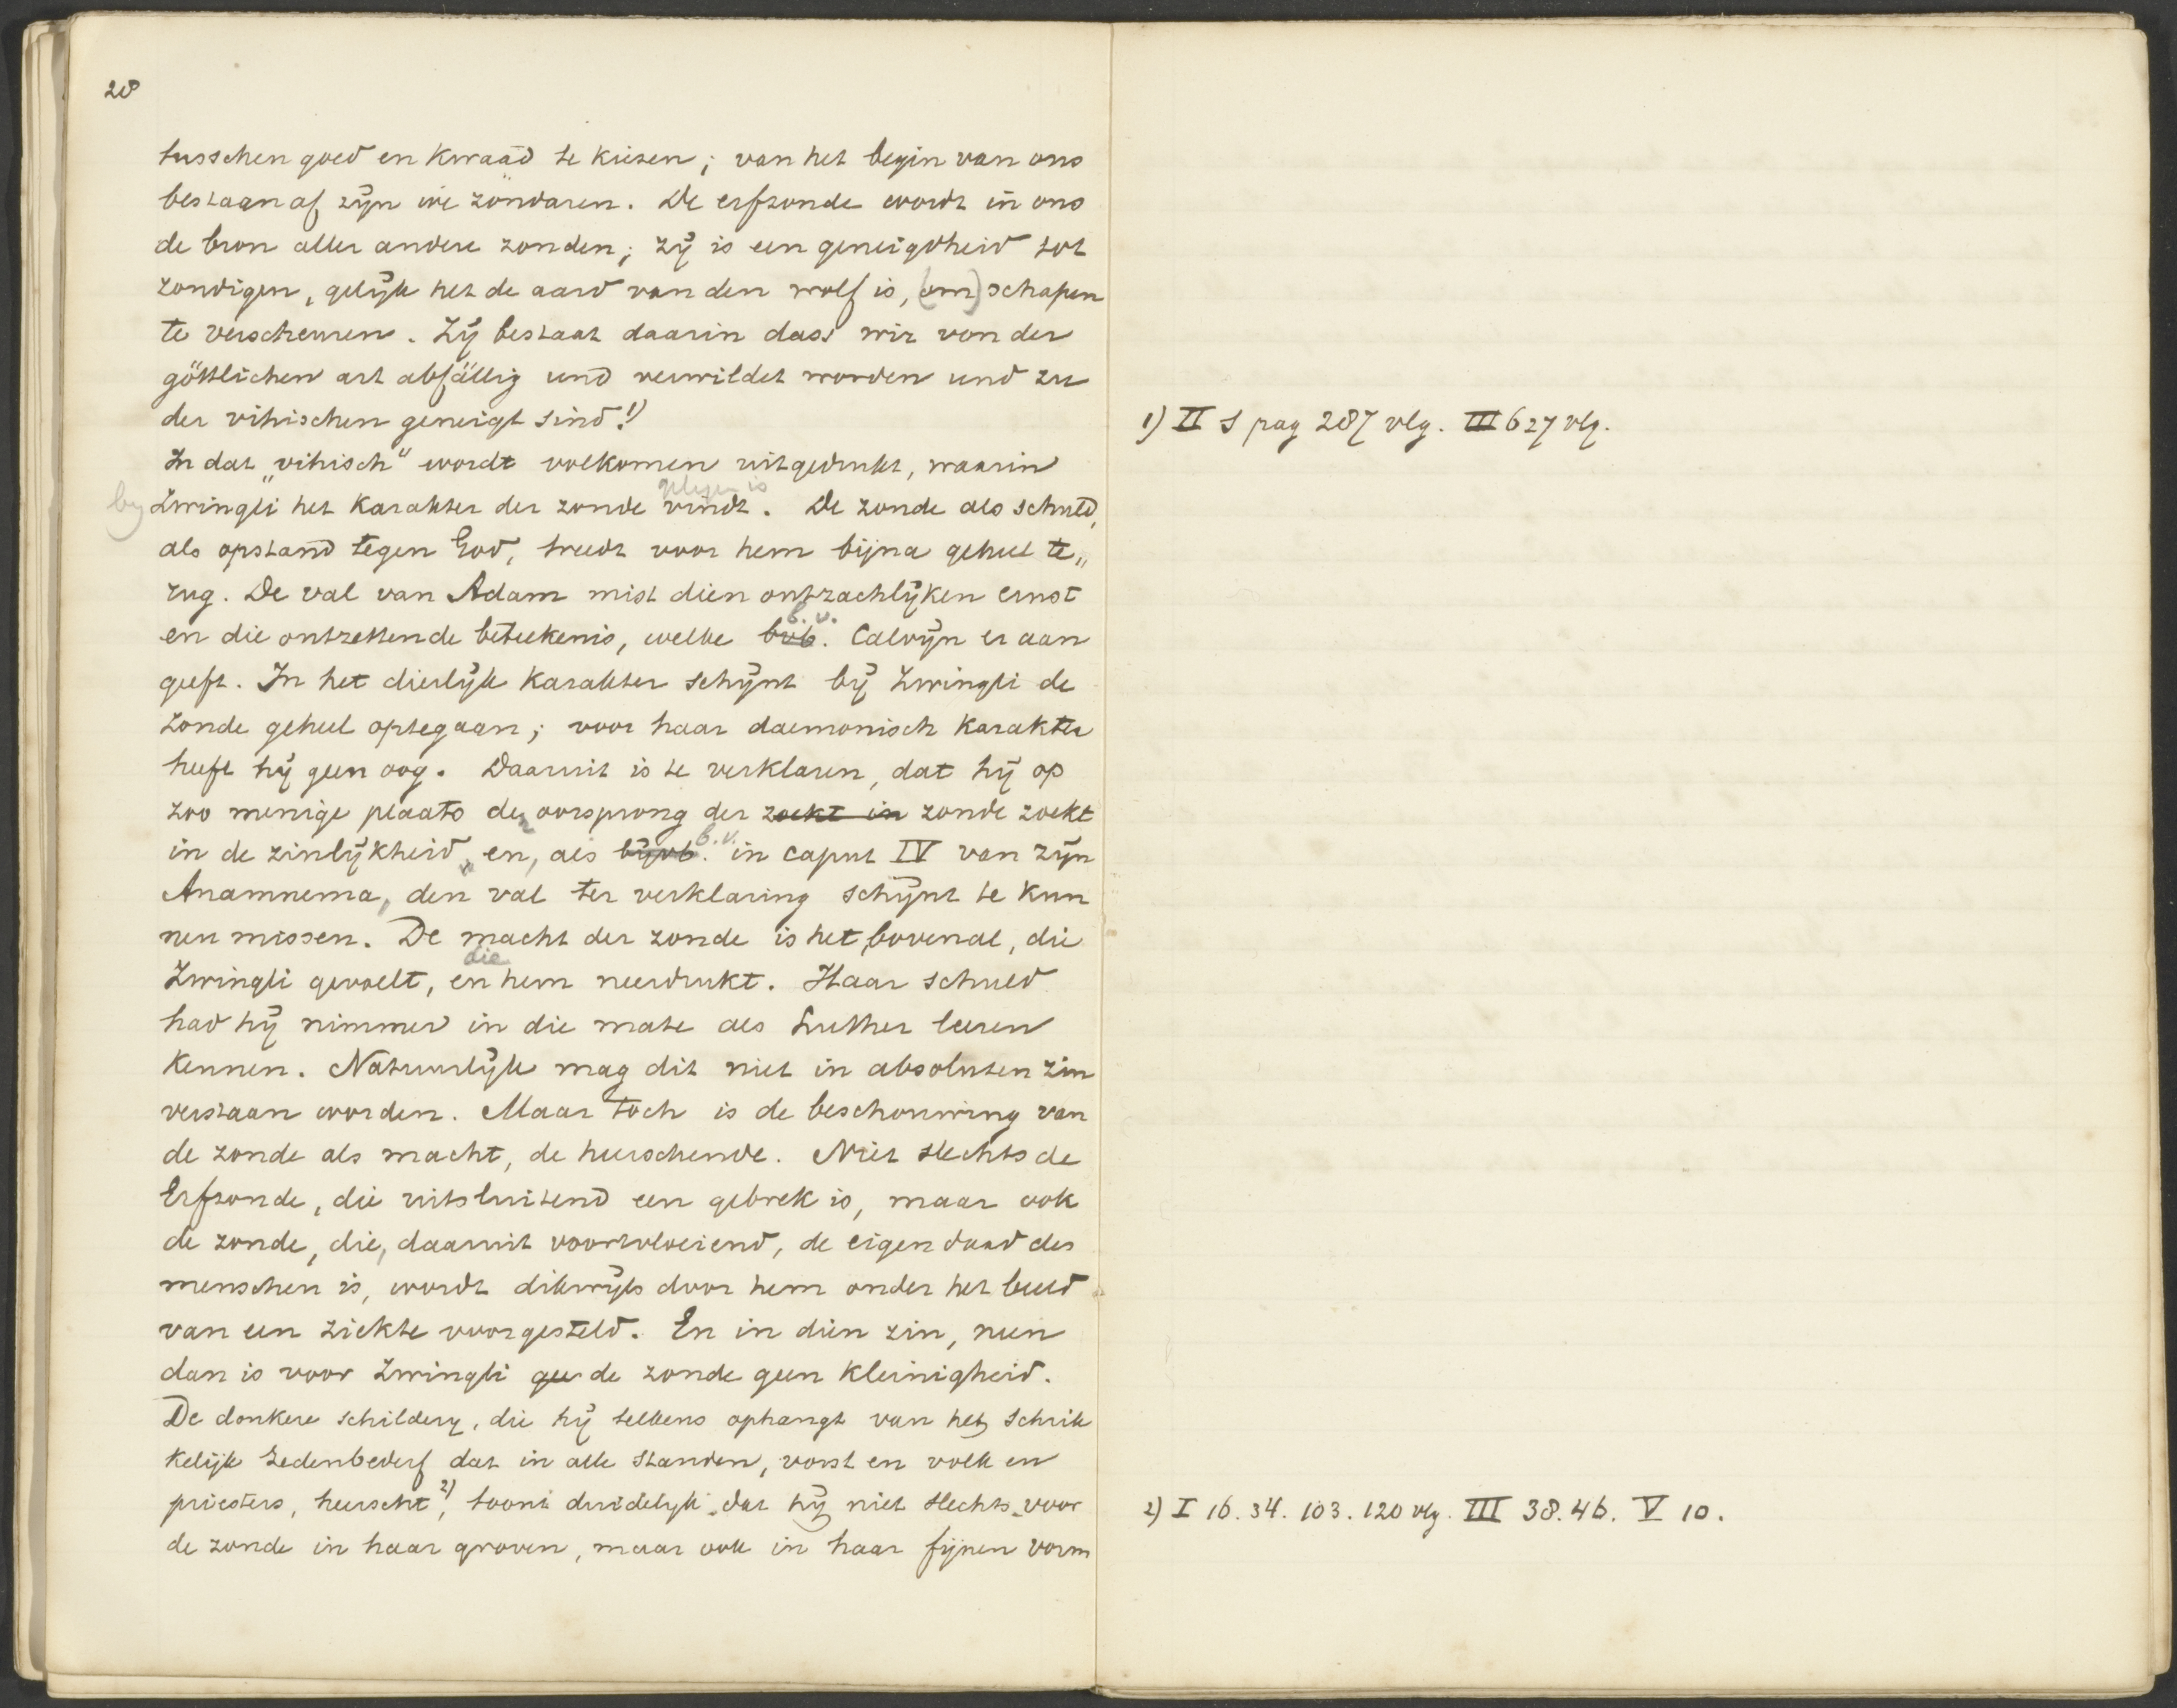 28
tusschen goed en kwaad te kiezen; van het begin van ons
bestaan af zijn wie zondaren. De erfzonde wordt in ons
de bron aller andere zonden; zij is een geneigdheid tot
zondigen, gelijk het de aard van den wolf is, (om) schapen
te verscheuren. Zij bestaat daarin dass wir von der
göttlichen art abfällig und verwildet worden und zu
der vihischen geneigt sind.1)
In dat "vihisch" wordt volkomen uitgedrukt, waarin
by Zwingli het karakter der zonde vindt. gelegen is De zonde als schuld,
als opstand tegen God, treedt voor hem bijna geheel te„
rug. De val van Adam mist dien ontzachlijken ernst
en die ontzettende beteekenis, welke bvb. b.v. Calvijn er aan
geeft. In het dierlijk karakter schijnt bij Zwingli de
zonde geheel optegaan; voor haar daemonisch karakter
heeft hij geen oog. Daaruit is te verklaren, dat hij op
zoo menige plaats den oorsprong der zoekt in zonde zoekt
in de zinlijkheid, en, als bijvb. b.v. in caput IV van zijn
Anamnema, den val ter verklaring schijnt te kun
nen missen. De macht der zonde is het, bovenal, die
Zwingli gevoelt, en die hem neerdrukt. Haar schuld
had hij nimmer in die mate als Luther leeren
kennen. Natuurlijk mag dit niet in absoluten zin
verstaan worden. Maar toch is de beschouwing van
de zonde als macht, de heerschende. Niet slechts de
Erfzonde, die uitsluitend een gebrek is, maar ook
de zonde, die, daaruit voortvloeiend, de eigen daad des
menschen is, wordt dikwijls door hem onder het beeld
van een ziekte voorgesteld. En in dien zin, neen
dan is voor Zwingli gee de zonde geen kleinigheid.
De donkere schildery, die hij telkens ophangt van het schrik
kelijk zedenbederf dat in alle standen, vorst en volk en
priesters, heerscht 2), toont duidelijk dat hij niet slechts voor
de zonde in haar groven, maar ook in haar fijnen vorm
1) II S pag 287 vlg. III 627 vlg.
2) I 16. 34. 103. 120 vlg. III 38. 46. V 10.